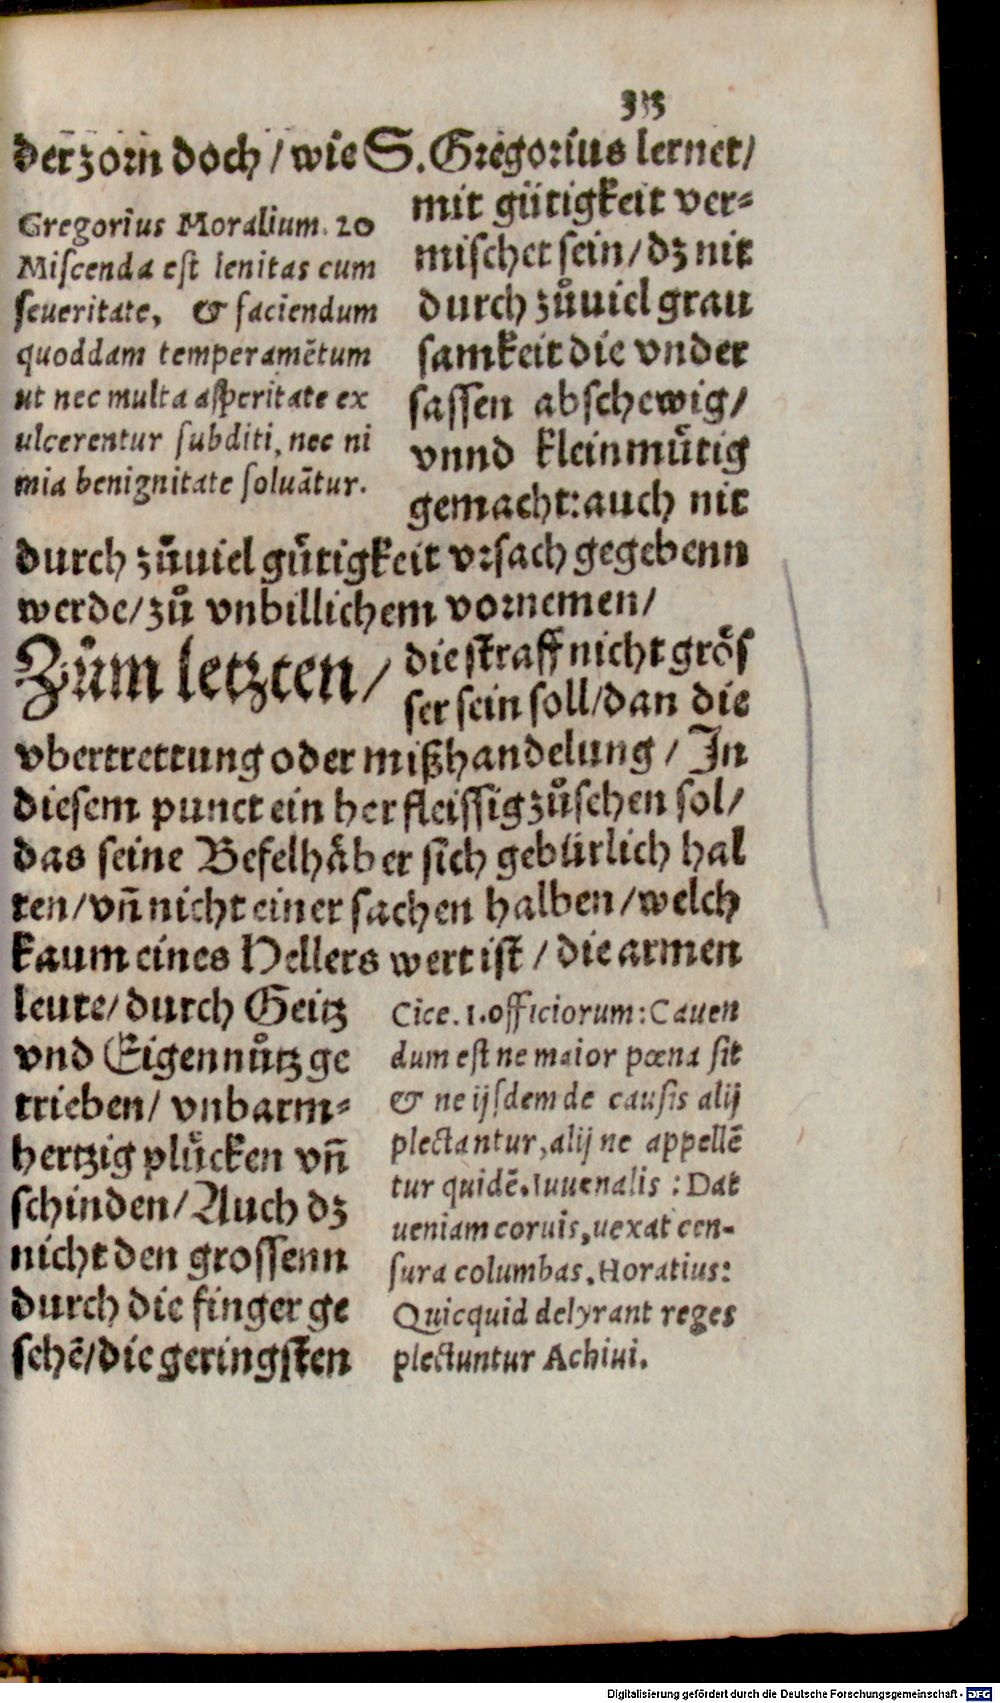 der zorn doch / wie S. Gregorius lernet /
Gregorius Moralium. 20
Miscenda est lenitas cum
seueritate, & faciendum
quoddam temperamētum
ut nec multa asperitate ex
ulcerentur subditi, nec ni
mia benignitate soluātur.
mit gütigkeit ver=
mischet sein / dz nit
durch zůuiel grau
samkeit die vnder
sassen abschewig /
vnnd kleinmůtig
gemacht: auch nit
durch zůuiel gůtigkeit vrsach gegebenn
werde / zů vnbillichem vornemen /
Zům letzten / die straff nicht grôs
ser sein soll / dan die
vbertrettung oder mißhandelung / In
diesem punct ein her fleissig zůsehen sol /
das seine Befelhâber sich gebürlich hal
ten / vñ nicht einer sachen halben / welch
kaum eines Hellers wert ist / die armen
leute / durch Geitz
vnd Eigennůtz ge
trieben / vnbarm=
hertzig plůcken vñ
schinden / Auch dz
nicht den grossenn
durch die finger ge
sehē / die geringsten
Cice. 1. officiorum: Cauen
dum est ne maior pœna sit
& ne ijsdem de causis alij
plectantur, alij ne appellē
tur quidē. Iuuenalis : Dat
ueniam coruis, uexat cen-
sura columbas. Horatius:
Quicquid delyrant reges
plectuntur Achiui.
Digitalisierung gefördert durch die Deutsche Forschungsgemeinschaft - DFG